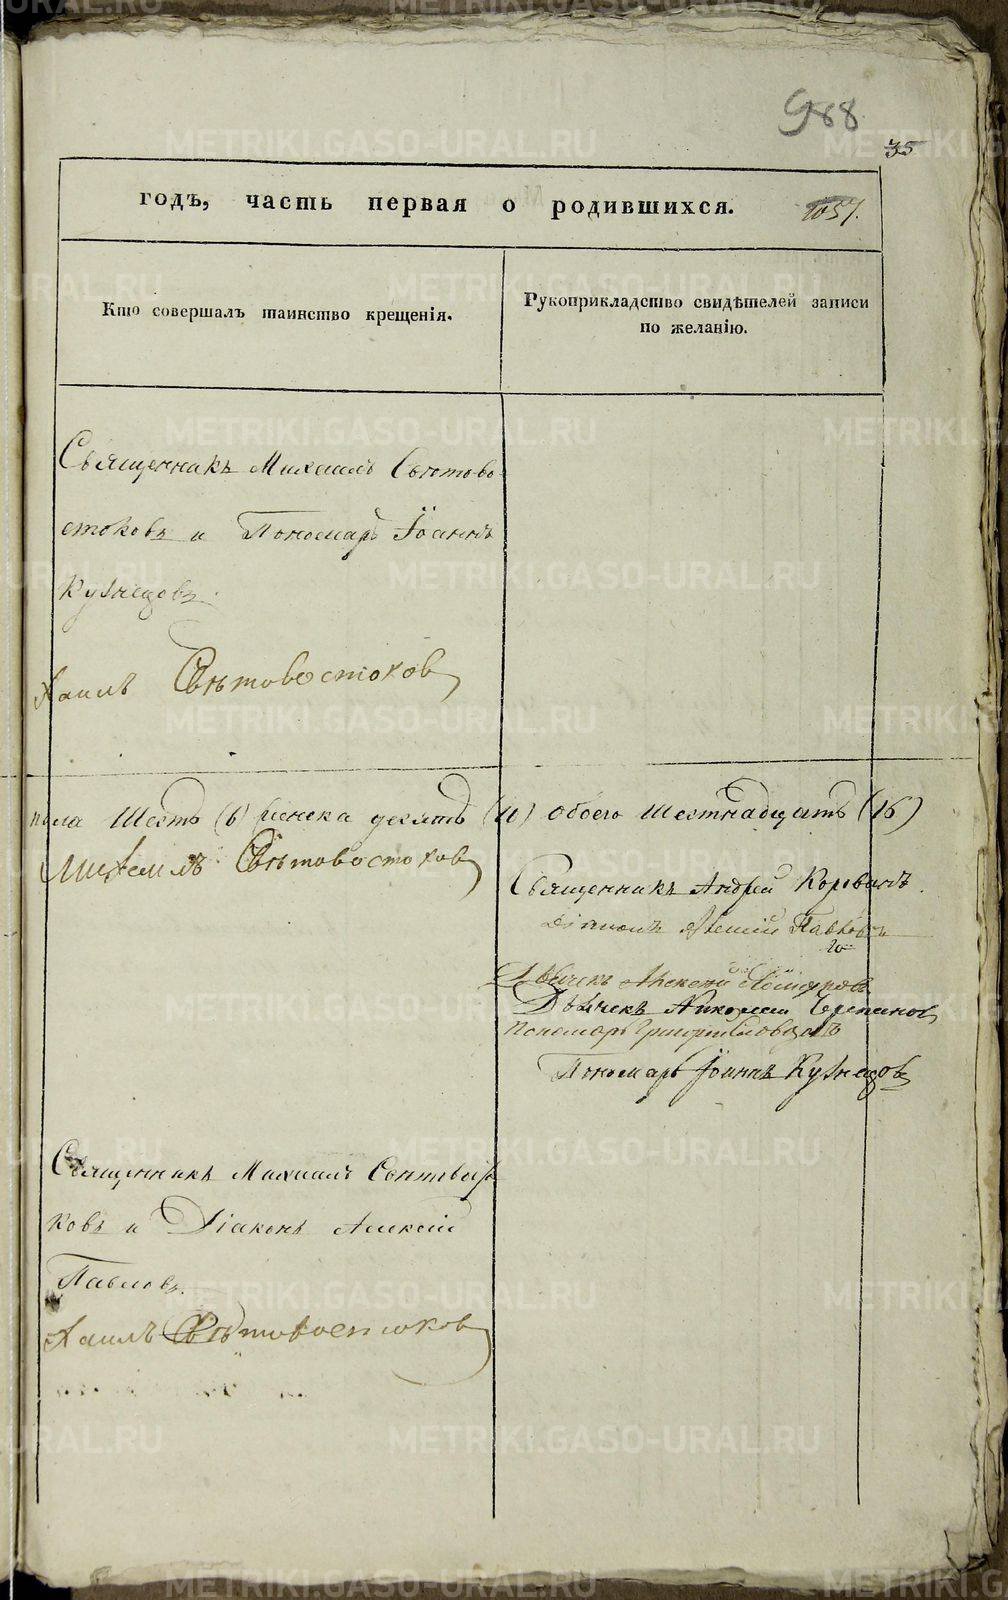 988
35
годъ, часть первая о родившихся. 1057.
Кто совершалъ таинство крещенія.
Рукоприкладство свидѣтелей записи
по желанію.
Священникъ Михаилъ Свѣтово-
стоковъ и Пономарь Іоаннъ
Кузнецовъ.
хаилъ Свѣтовостоков
пола Шесть (6) женска десять (10) обоего Шестнадцать (16)
Михаилъ Свѣтовостоков
Священникъ Андрей
Діаконъ Алексій Павловъ
Дьячекъ Алексей
Дьячекъ Николай
Пономарь Григорій
Пономарь Іоаннъ Кузнецовъ
Священникъ Михаилъ
ковъ и Діаконъ Алексій
Павловъ.
хаилъ Свѣтовостоков
METRIKI.GASO-URAL.RU